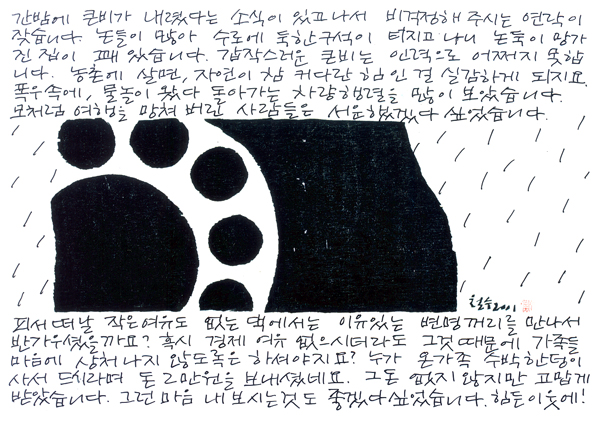 간밤에 큰비가 내렸다는 소식이 있고나서 비걱정해 주시는 연락이
잦습니다. 논들이 많아 수로에 툭한구석이 터지고 나니 논둑이 망가
진 집이 꽤 있습니다. 갑작스러운 큰비는 인력으로 어쩌지 못합
니다. 농촌에 살면, 자연이 참 커다란 힘인걸 실감하게 되지요.
폭우속에, 물놀이 왔다 돌아가는 차량행렬을 많이 보았습니다.
모처럼 여행을 망쳐 버린 사람들은 서운했겠다 싶었습니다.
철수 2001
피서 떠날 작은여유도 없는 댁에서는 이유있는 변명꺼리를 만나서
반가우셨을까요? 혹시 경제 여유 없으시더라도 그것때문에 가족들
마음에 상처 나지 않도록은 하셔야지요? 누가 온가족 수박한덩이
사서 드시라며 돈 2만원을 보내셨네요. 그돈 없지 않지만 고맙게
받았습니다. 그런 마음 내 보시는것도 좋겠다 싶었습니다. 힘든 이웃에!